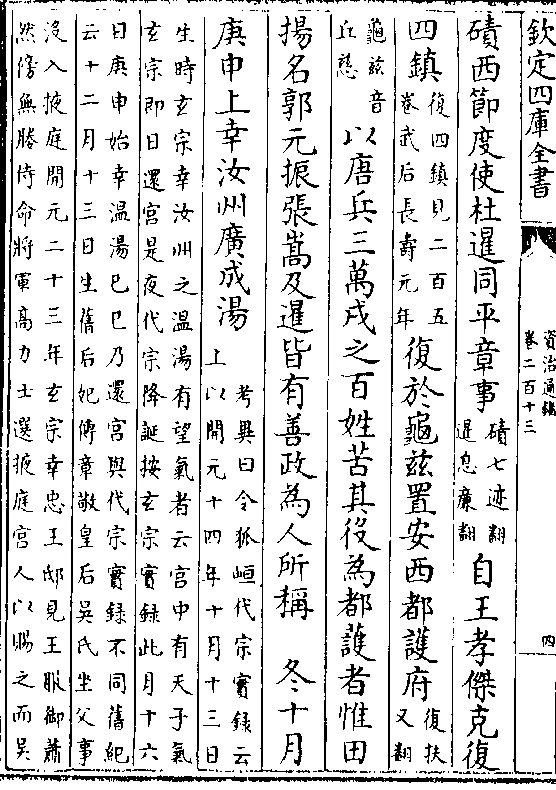 欽定四庫全書
資治通鑑
卷二百十三
四
磧西節度使杜暹同平章事 磧七迹翻暹息廉翻 自王孝傑克復
四鎮 復四鎮見二百五卷武后長壽元年 復於龜兹置安西都護府 復扶又翻
龜兹音丘慈 以唐兵三萬戍之百姓苦其役為都護者惟田
揚名郭元振張嵩及暹皆有善政為人所稱 冬十月
庚申上幸汝州廣成湯 考異曰令狐峘代宗實録云上以開元十四年十月十三日
生時玄宗幸汝州之温湯有望氣者云宫中有天子氣
玄宗即日還宫是夜代宗降誕按玄宗實録此月十六
日庚申始幸温湯巳巳乃還宫與代宗實録不同舊紀
云十二月十三日生舊后妃傳章敬皇后吳氏坐父事
没入掖庭開元二十三年玄宗幸忠王邸見王服御蕭
然傍無勝侍命將軍高力士選掖庭宫人以賜之而吳